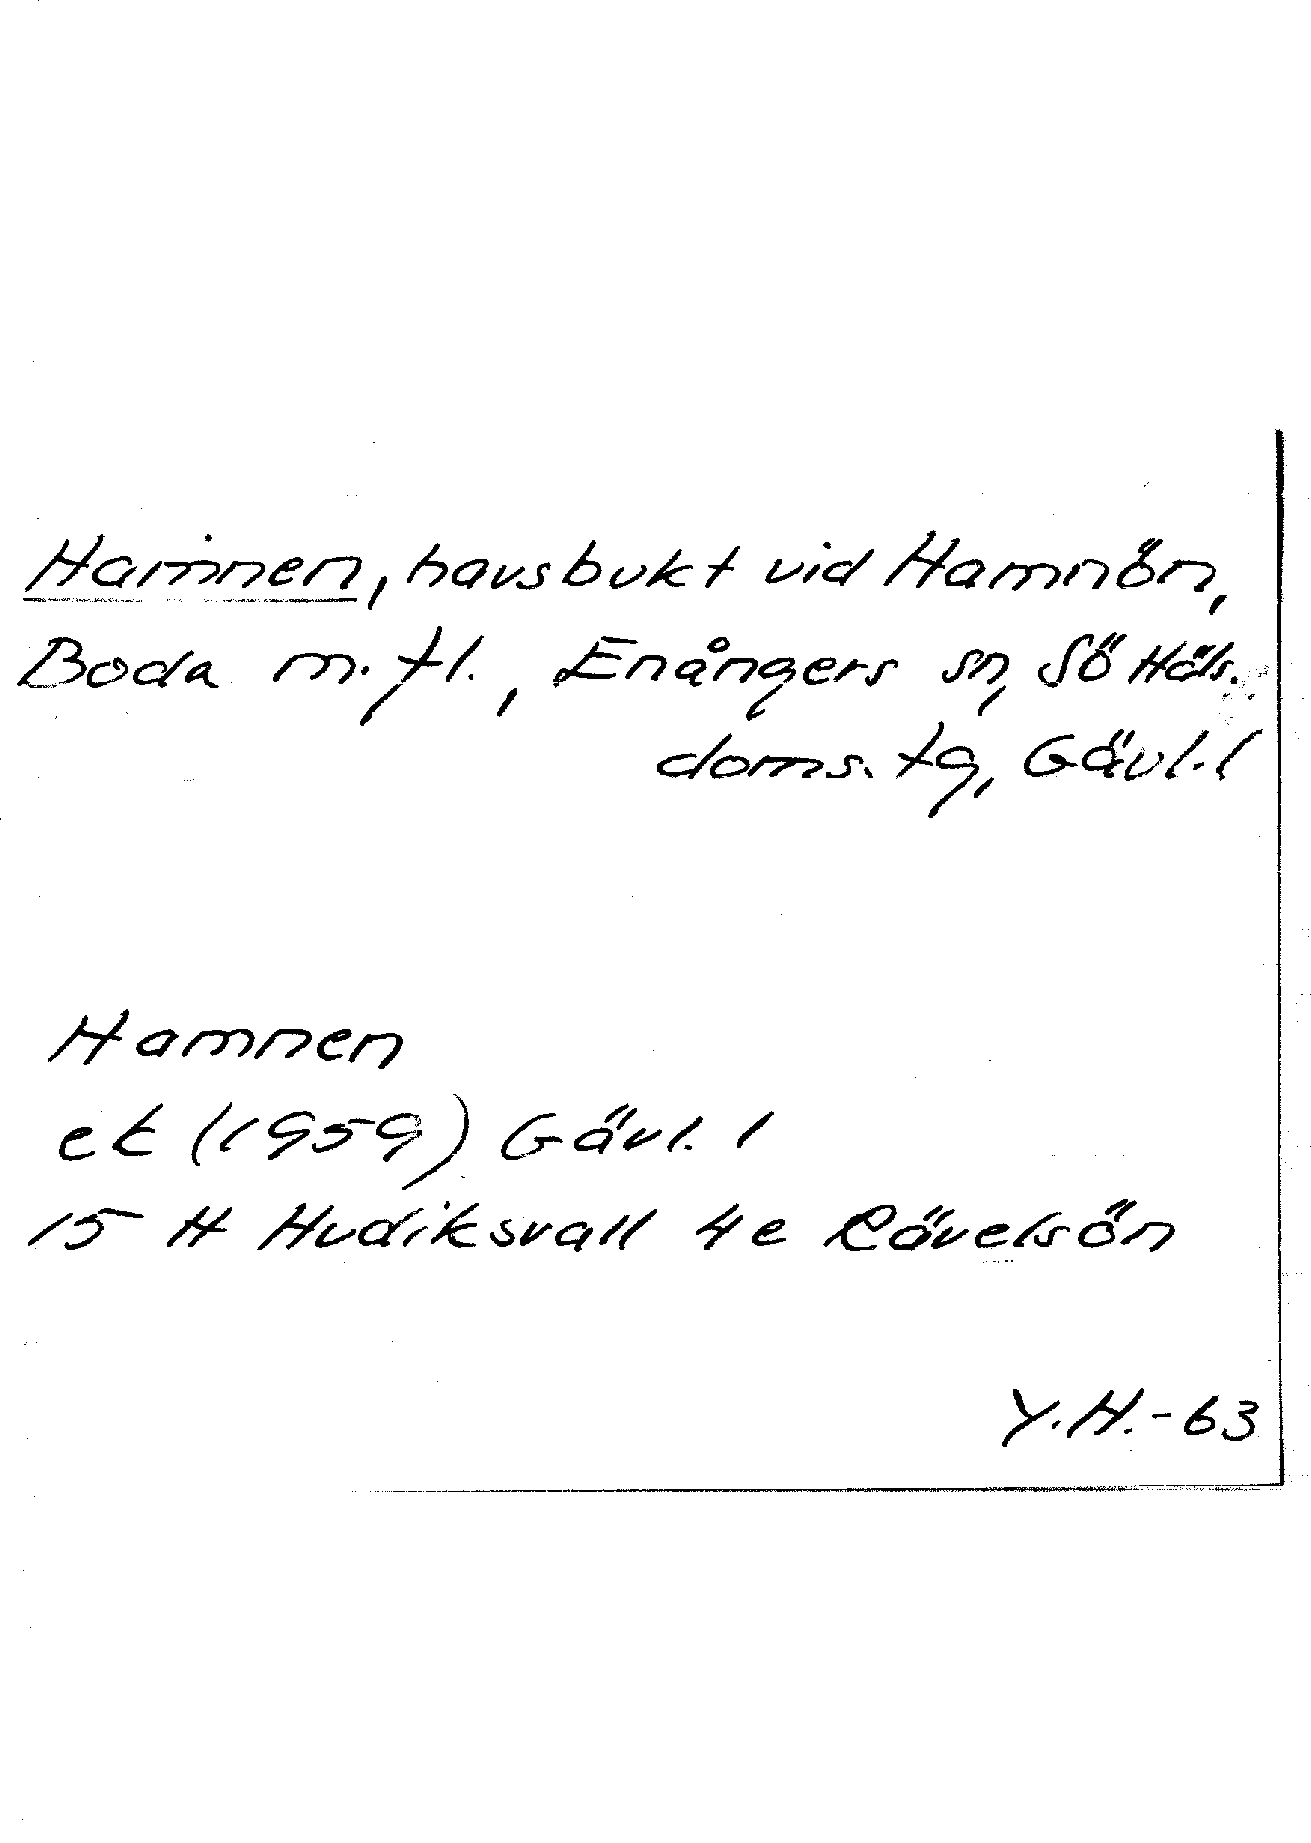 Hamnen, havsbukt vid Hamnön,
Boda m. fl., Enångers sn, Sö Häls.
doms. tg, Gävl. l
Hamnen
ek (1959) Gävl. l
15 H Hudiksvall 4e Rävelsön
Y.H.-63